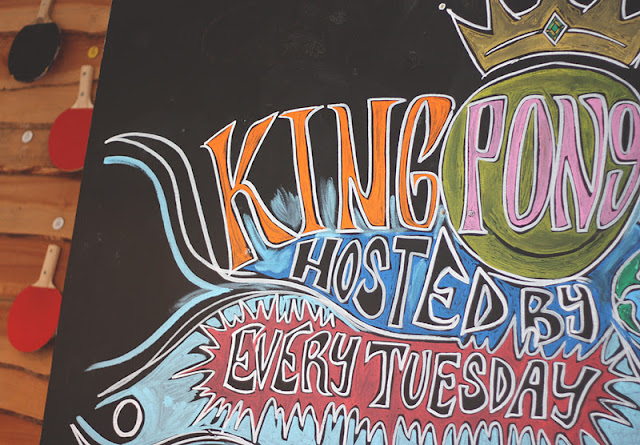 KING PONG
HOSTED BY
EVERY TUESDAY